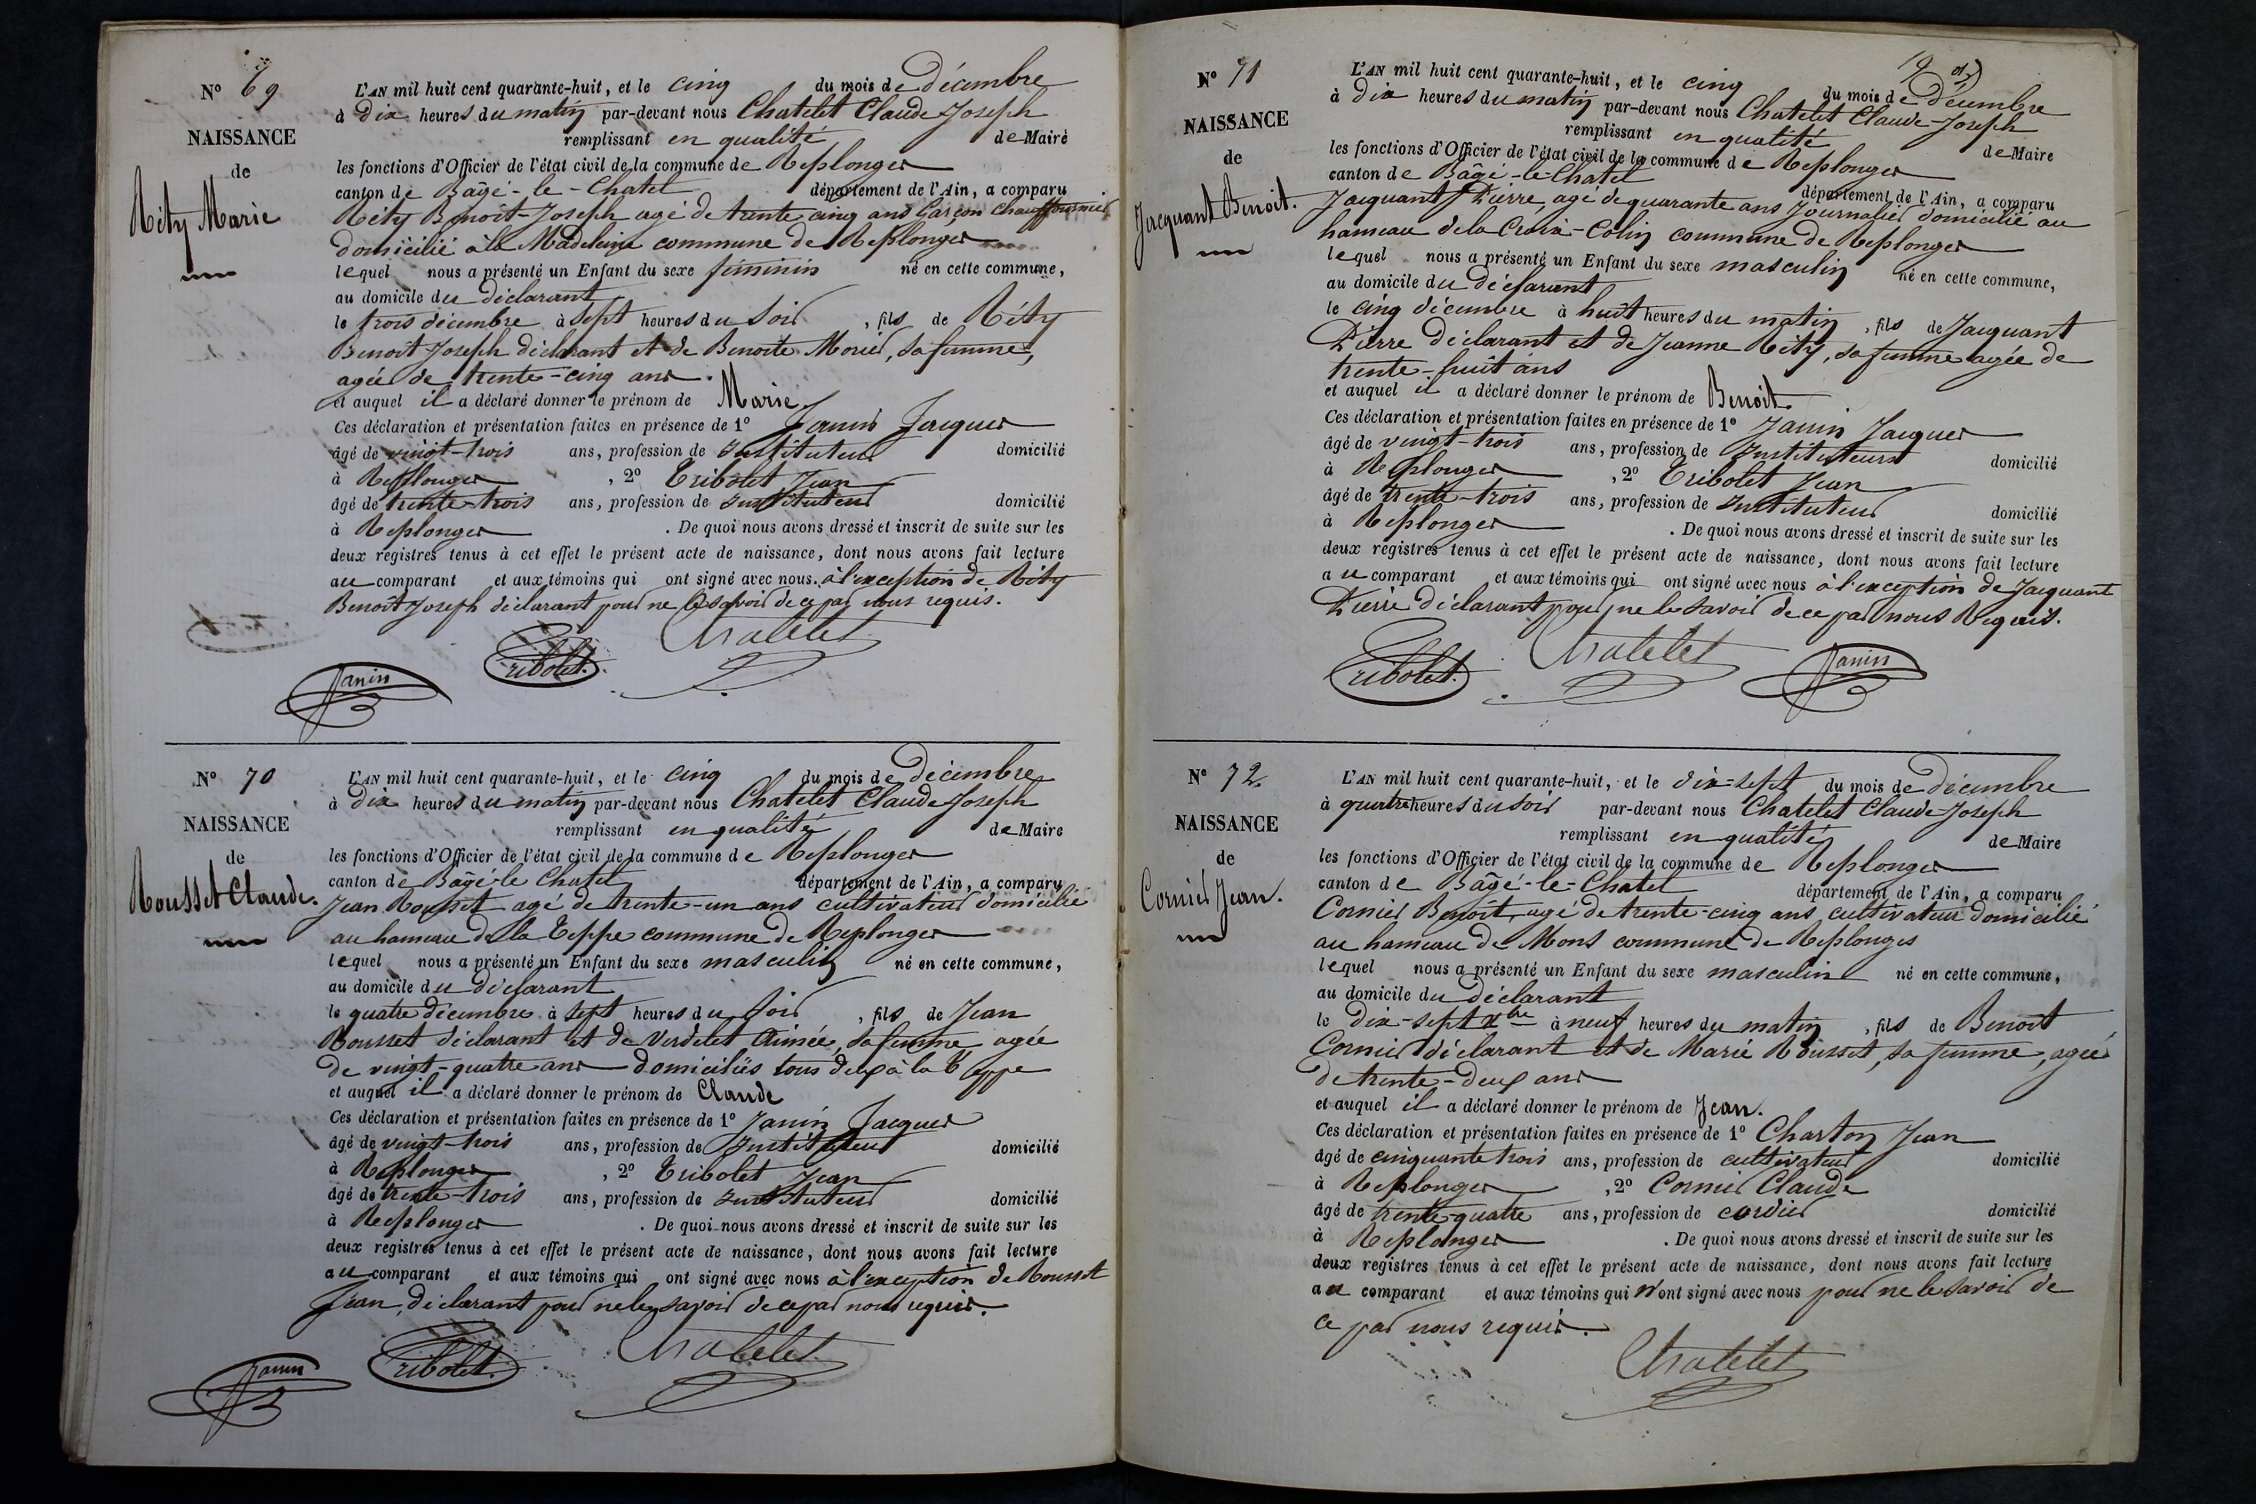 N° 69
NAISSANCE
de
Réty Marie
L'AN mil huit cent quarante-huit, et le cinq du mois de Décembre
à Dix heures du matin par-devant nous Chatelet Claude Joseph
remplissant en qualité de Maire
les fonctions d'Officier de l'état civil de la commune de Replonges
canton de Bâgé-le-Chatel département de l'Ain, a comparu
Réty Benoit-Joseph agé de trente cinq ans Garçon chauffournier
domicilié à la Madeleine commune de Replonges
lequel nous a présenté un Enfant du sexe féminin né en cette commune,
au domicile du déclarant
le trois décembre à sept heures du soir, fils de Réty
Benoit Joseph déclarant et de Benoite Morier, sa femme,
agée de trente-cinq ans.
et auquel il a déclaré donner le prénom de Marie.
Ces déclaration et présentation faites en présence de 1° Janin Jacques
âgé de vingt-trois ans, profession de Instituteur domicilié
à Replonges, 2° Tribolet Jean
âgé de trente-trois ans, profession de Instituteur domicilié
à Replonges. De quoi nous avons dressé et inscrit de suite sur les
deux registres tenus à cet effet le présent acte de naissance, dont nous avons fait lecture
au comparant et aux témoins qui ont signé avec nous. à l'exception de Réty
Benoit Joseph déclarant pour ne le savoir de ce par nous requis.
Chatelet
Tribolet.
Janin
N° 70
NAISSANCE
de
Rousset Claude.
L'AN mil huit cent quarante-huit, et le cinq du mois de Décembre
à Dix heures du matin par-devant nous Chatelet Claude Joseph
remplissant en qualité de Maire
les fonctions d'Officier de l'état civil de la commune de Replonges
canton de Bâgé-le Chatel département de l'Ain, a comparu
Jean Rousset agé de trente-un ans cultivateur domicilié
au hameau de la Teppe commune de Replonges
lequel nous a présenté un Enfant du sexe masculin né en cette commune,
au domicile du déclarant
le quatre décembre à sept heures du soir, fils de Jean
Rousset déclarant et de Verdelet Aimée, sa femme, agée
de vingt-quatre ans domiciliés tous deux à la Teppe
et auquel il a déclaré donner le prénom de Claude
Ces déclaration et présentation faites en présence de 1° Janin Jacques
âgé de vingt-trois ans, profession de Instituteur domicilié
à Replonges, 2° Tribolet Jean
âgé de trente-trois ans, profession de Instituteur domicilié
à Replonges. De quoi nous avons dressé et inscrit de suite sur les
deux registres tenus à cet effet le présent acte de naissance, dont nous avons fait lecture
au comparant et aux témoins qui ont signé avec nous à l'exception de Rousset
Jean, déclarant pour ne le savoir de ce par nous requis.
Chatelet
Tribolet.
Janin
19
N° 71
NAISSANCE
de
Jacquant Benoit.
L'AN mil huit cent quarante-huit, et le cinq du mois de Décembre
à Dix heures du matin par-devant nous Chatelet Claude-Joseph
remplissant en qualité de Maire
les fonctions d'Officier de l'état civil de la commune de Replonges
canton de Bâgé-le-Chatel département de l'Ain, a comparu
Jacquant Pierre, agé de quarante ans Journalier domicilié au
hameau de la Croix-Colin commune de Replonges
lequel nous a présenté un Enfant du sexe masculin né en cette commune,
au domicile du déclarant
le cinq décembre à huit heures du matin, fils de Jacquant
Pierre déclarant et de Jeanne Réty, sa femme agée de
trente-huit ans
et auquel il a déclaré donner le prénom de Benoit.
Ces déclaration et présentation faites en présence de 1° Janin Jacques
âgé de vingt-trois ans, profession de Instituteurs domicilié
à Replonges, 2° Tribolet Jean
âgé de trente-trois ans, profession de Instituteur domicilié
à Replonges. De quoi nous avons dressé et inscrit de suite sur les
deux registres tenus à cet effet le présent acte de naissance, dont nous avons fait lecture
au comparant et aux témoins qui ont signé avec nous à l'exception de Jacquant
Pierre déclarant pour ne le savoir de ce par nous Requis.
Chatelet
Tribolet.
Janin
N° 72
NAISSANCE
de
Cornier Jean.
L'AN mil huit cent quarante-huit, et le dix-sept du mois de Décembre
à quatre heures du soir par-devant nous Chatelet Claude-Joseph
remplissant en qualité de Maire
les fonctions d'Officier de l'état civil de la commune de Replonges
canton de Bâgé-le-Chatel département de l'Ain, a comparu
Cornier Benoit, agé de trente-cinq ans, cultivateur domicilié
au hameau de Mons commune de Replonges
lequel nous a présenté un Enfant du sexe masculin né en cette commune,
au domicile du déclarant
le Dix-sept Xbre à neuf heures du matin, fils de Benoit
Cornier déclarant et de Marie Rousset, sa femme, agée
de trente-deux ans
et auquel il a déclaré donner le prénom de Jean.
Ces déclaration et présentation faites en présence de 1° Charton Jean
âgé de cinquante trois ans, profession de cultivateur domicilié
à Replonges, 2° Cornier Claude
âgé de trente-quatre ans, profession de cordier domicilié
à Replonges. De quoi nous avons dressé et inscrit de suite sur les
deux registres tenus à cet effet le présent acte de naissance, dont nous avons fait lecture
au comparant et aux témoins qui n'ont signé avec nous pour ne le savoir de
ce par nous requis.
Chatelet